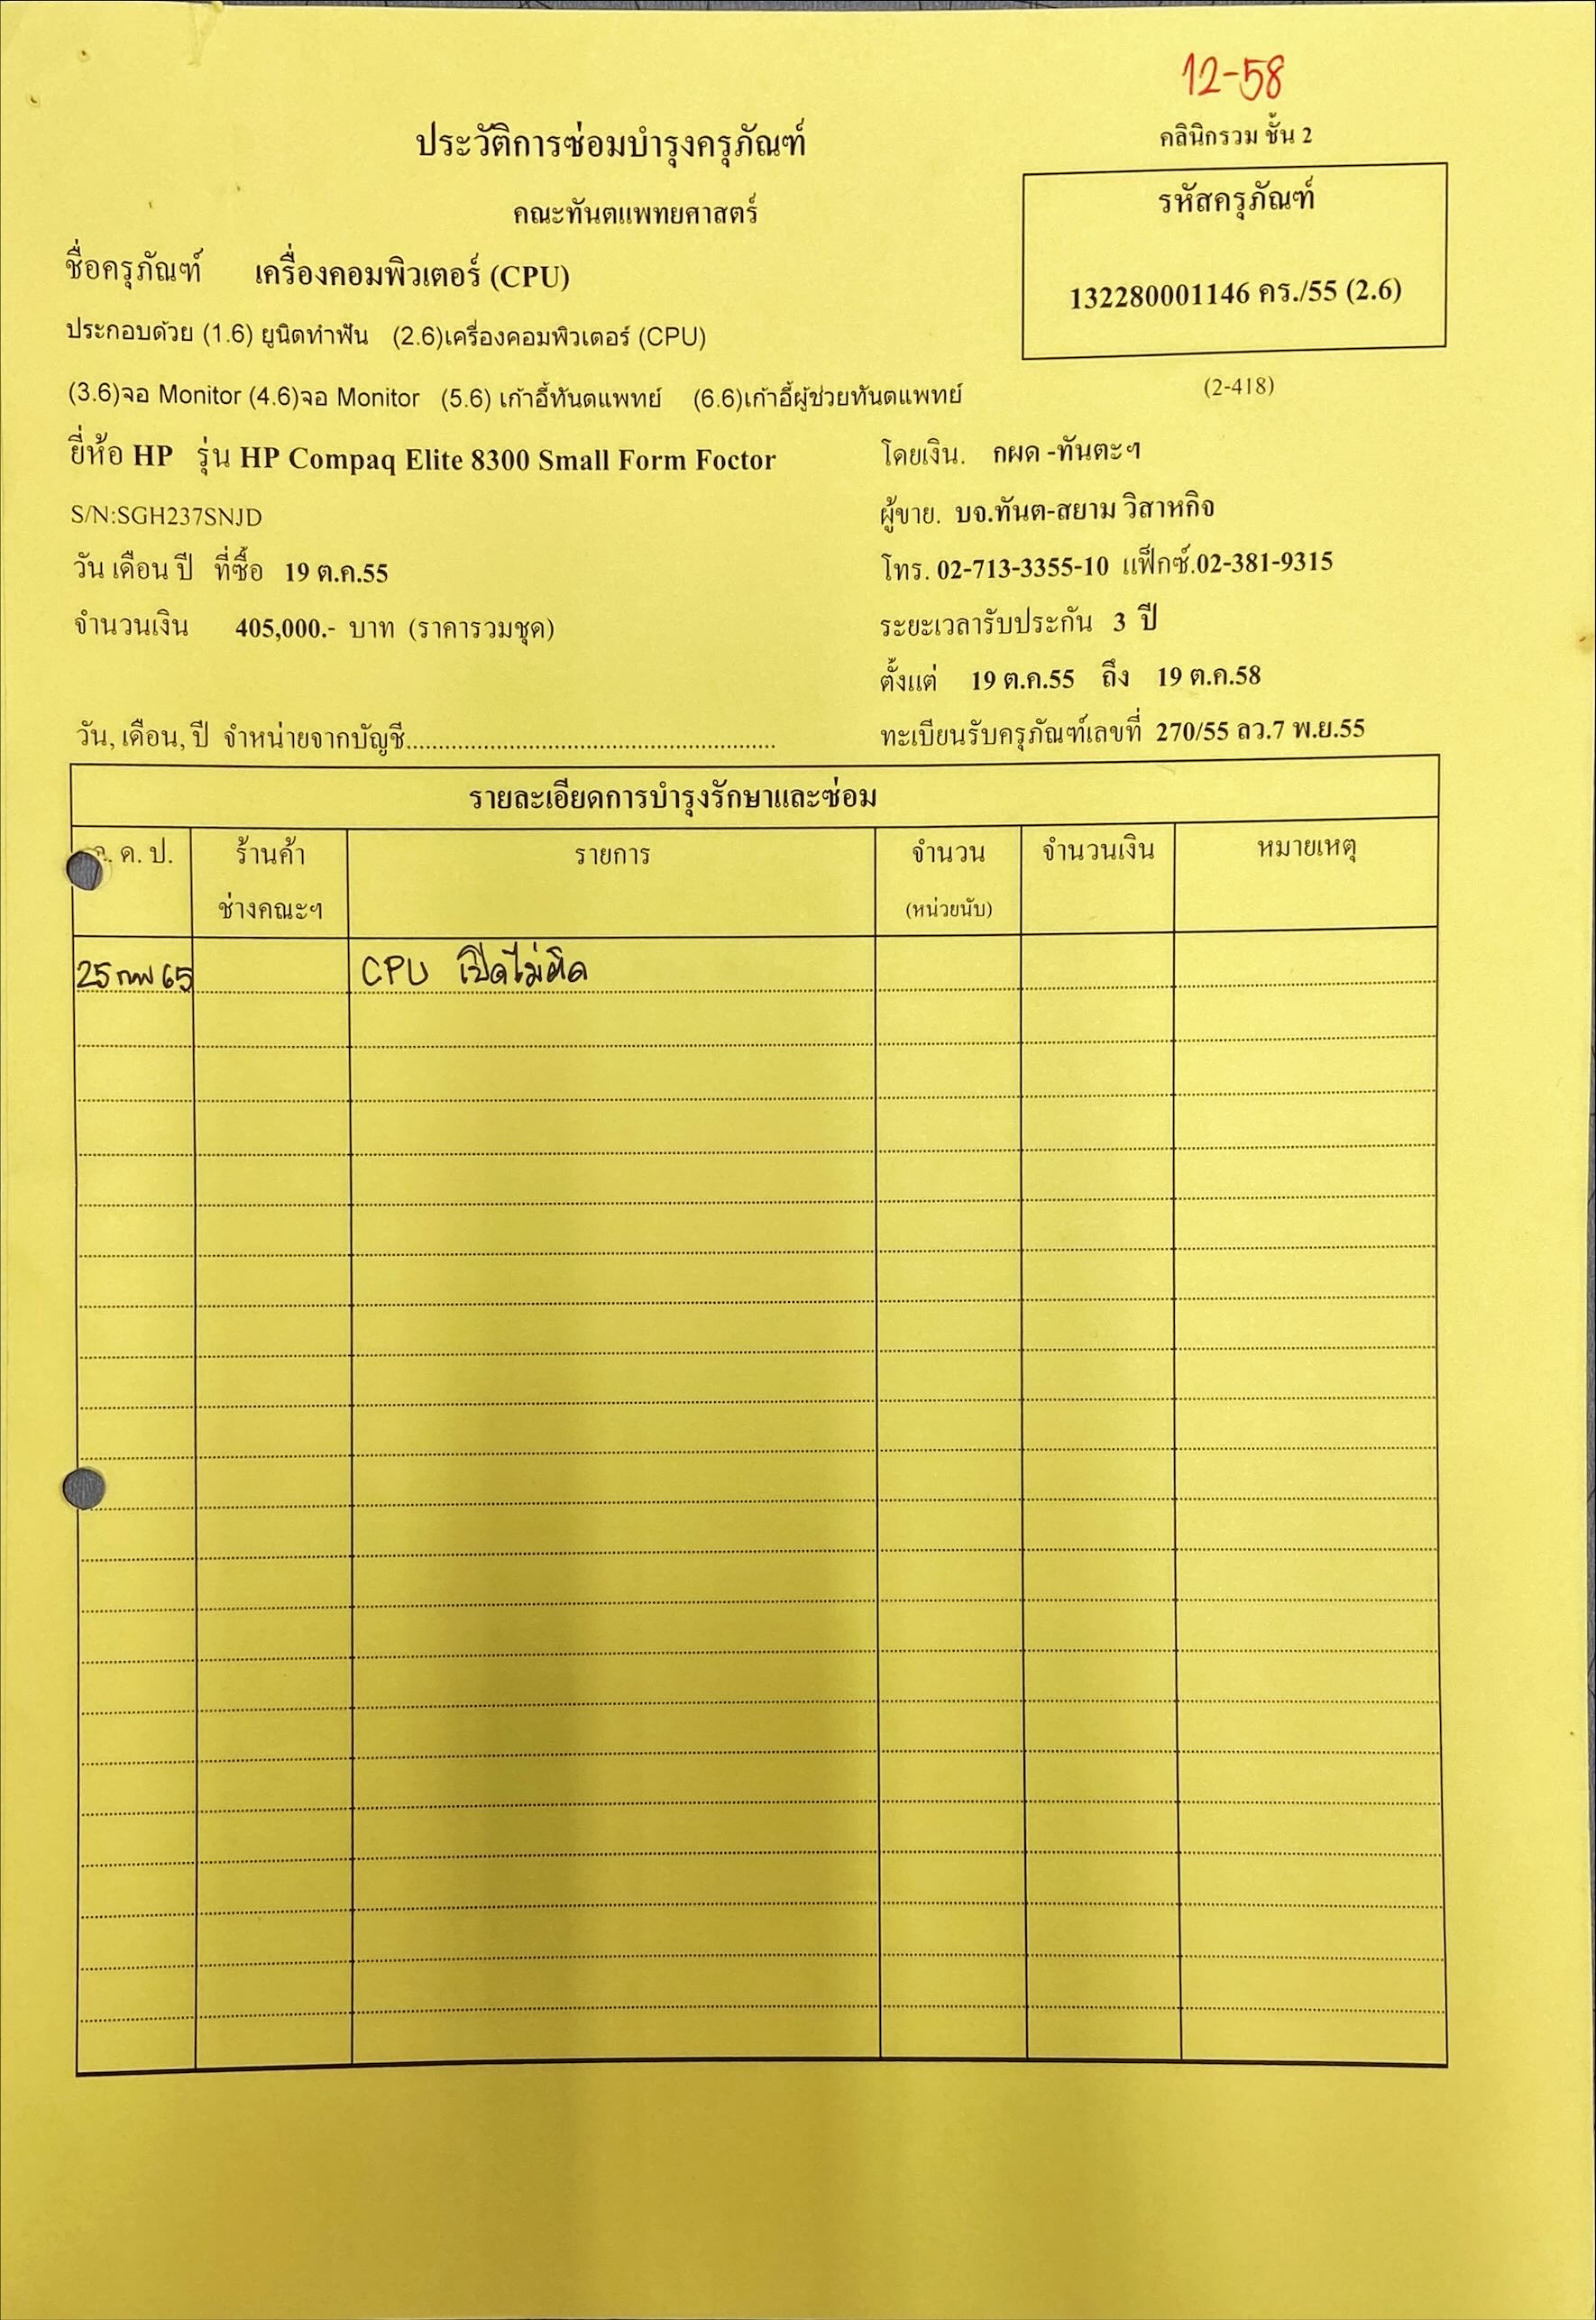 12-58
คลินิกรวม ชั้น 2
ประวัติการซ่อมบำรุงครุภัณฑ์
คณะทันตแพทยศาสตร์
รหัสครุภัณฑ์
132280001146 คร./55 (2.6)
(2-418)
ชื่อครุภัณฑ์ เครื่องคอมพิวเตอร์ (CPU)
ประกอบด้วย (1.6) ยูนิตทำฟัน (2.6)เครื่องคอมพิวเตอร์ (CPU)
(3.6)จอ Monitor (4.6)จอ Monitor (5.6) เก้าอี้ทันตแพทย์ (6.6)เก้าอี้ผู้ช่วยทันตแพทย์
ยี่ห้อ HP รุ่น HP Compaq Elite 8300 Small Form Foctor
โดยเงิน. กผด -ทันตะฯ
S/N:SGH237SNJD
ผู้ขาย. บจ.ทันต-สยาม วิสาหกิจ
วัน เดือน ปี ที่ซื้อ 19 ต.ค.55
โทร. 02-713-3355-10 แฟ็กซ์.02-381-9315
จำนวนเงิน 405,000.- บาท (ราคารวมชุด)
ระยะเวลารับประกัน 3 ปี
ตั้งแต่ 19 ต.ค.55 ถึง 19 ต.ค.58
วัน, เดือน, ปี จำหน่ายจากบัญชี..........................................................
ทะเบียนรับครุภัณฑ์เลขที่ 270/55 ลว.7 พ.ย.55
รายละเอียดการบำรุงรักษาและซ่อม
ด. ป. ร้านค้า รายการ จำนวน จำนวนเงิน หมายเหตุ
ช่างคณะฯ (หน่วยนับ)
25 กพ 65 CPU เปิดไม่ติด